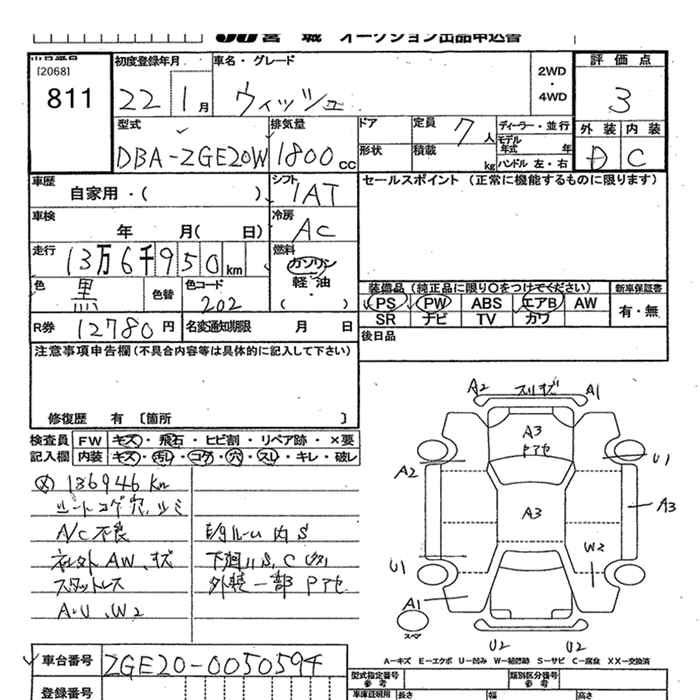 宮 城 オークション出品申込書
出品番号 [2068] 811
初度登録年月 22 1月
車名・グレード ウィッシュ
2WD・4WD
評価点 3
外装 D 内装 C
型式 DBA-ZGE20W
排気量 1800cc
ドア 定員 7人
形状 積載 kg
ディーラー・並行
モデル年式 年
ハンドル 左・右
車歴 自家用・( )
シフト IAT
セールスポイント (正常に機能するものに限ります)
車検 年 月( 日)
冷房 AC
走行 13万6千950km
燃料 ガソリン 軽油 ( )
色 黒 色替
色コード 202
装備品 (純正品に限り○をつけてください)
新車保証書 有・無
PS PW ABS エアB AW
SR ナビ TV カワ
R券 12780円
名変通知期限 月 日
後日品
注意事項申告欄 (不具合内容等は具体的に記入して下さい)
修復歴 有 〔箇所 〕
検査員記入欄
FW キズ・飛石・ヒビ割・リペア跡・×要
内装 キズ・汚れ・コゲ・穴・スレ・キレ・破レ
136946 Km
シートコゲ穴、シミ
A/C不良 E/gルーム内S
AW、キズ 下廻りS、C
スペアタイヤレス 外装一部Pアセ
A・U、W2
A2 A1
A3 Pアセ
U1
A2
A3
A3
W2
U1
A1
スペア
U2 U2
A-キズ E-エクボ U-凹み W-補修跡 S-サビ C-腐食 XX-交換済
車台番号 ZGE20-0050594
型式指定番号 参考
類別区分番号 参考
登録番号
車庫証明用 長さ 幅 高さ